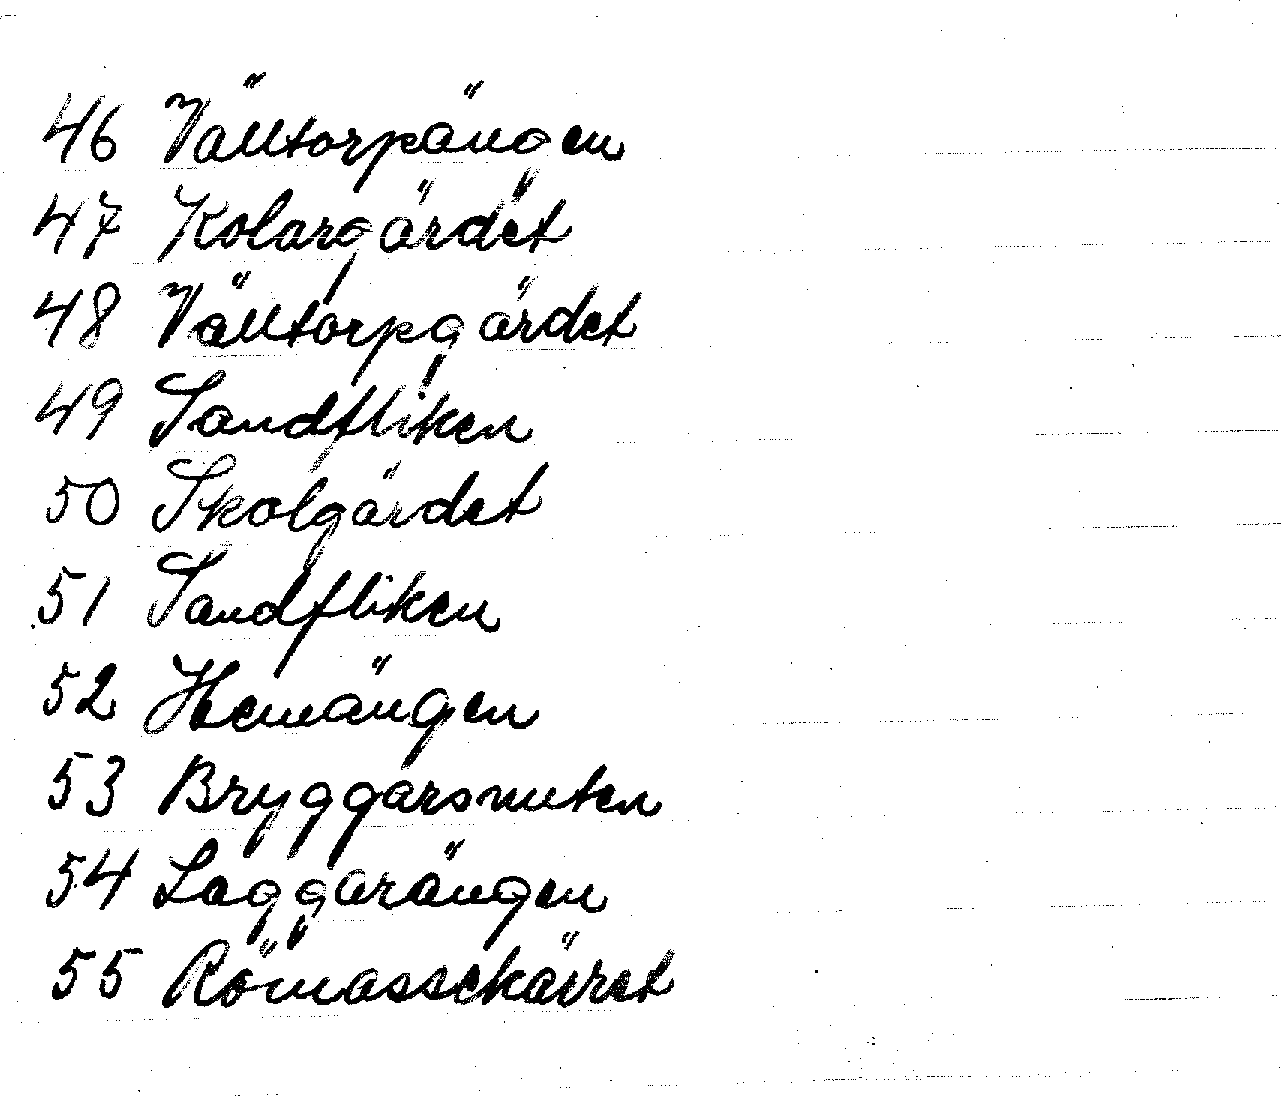 46 Välltorpängen
47 Kolargärdet
48 Välltorpgärdet
49 Sandfliken
50 Skolgärdet
51 Sandfliken
52 Hemängen
53 Bryggarsmuten
54 Laggarängen
55 Römassekärret